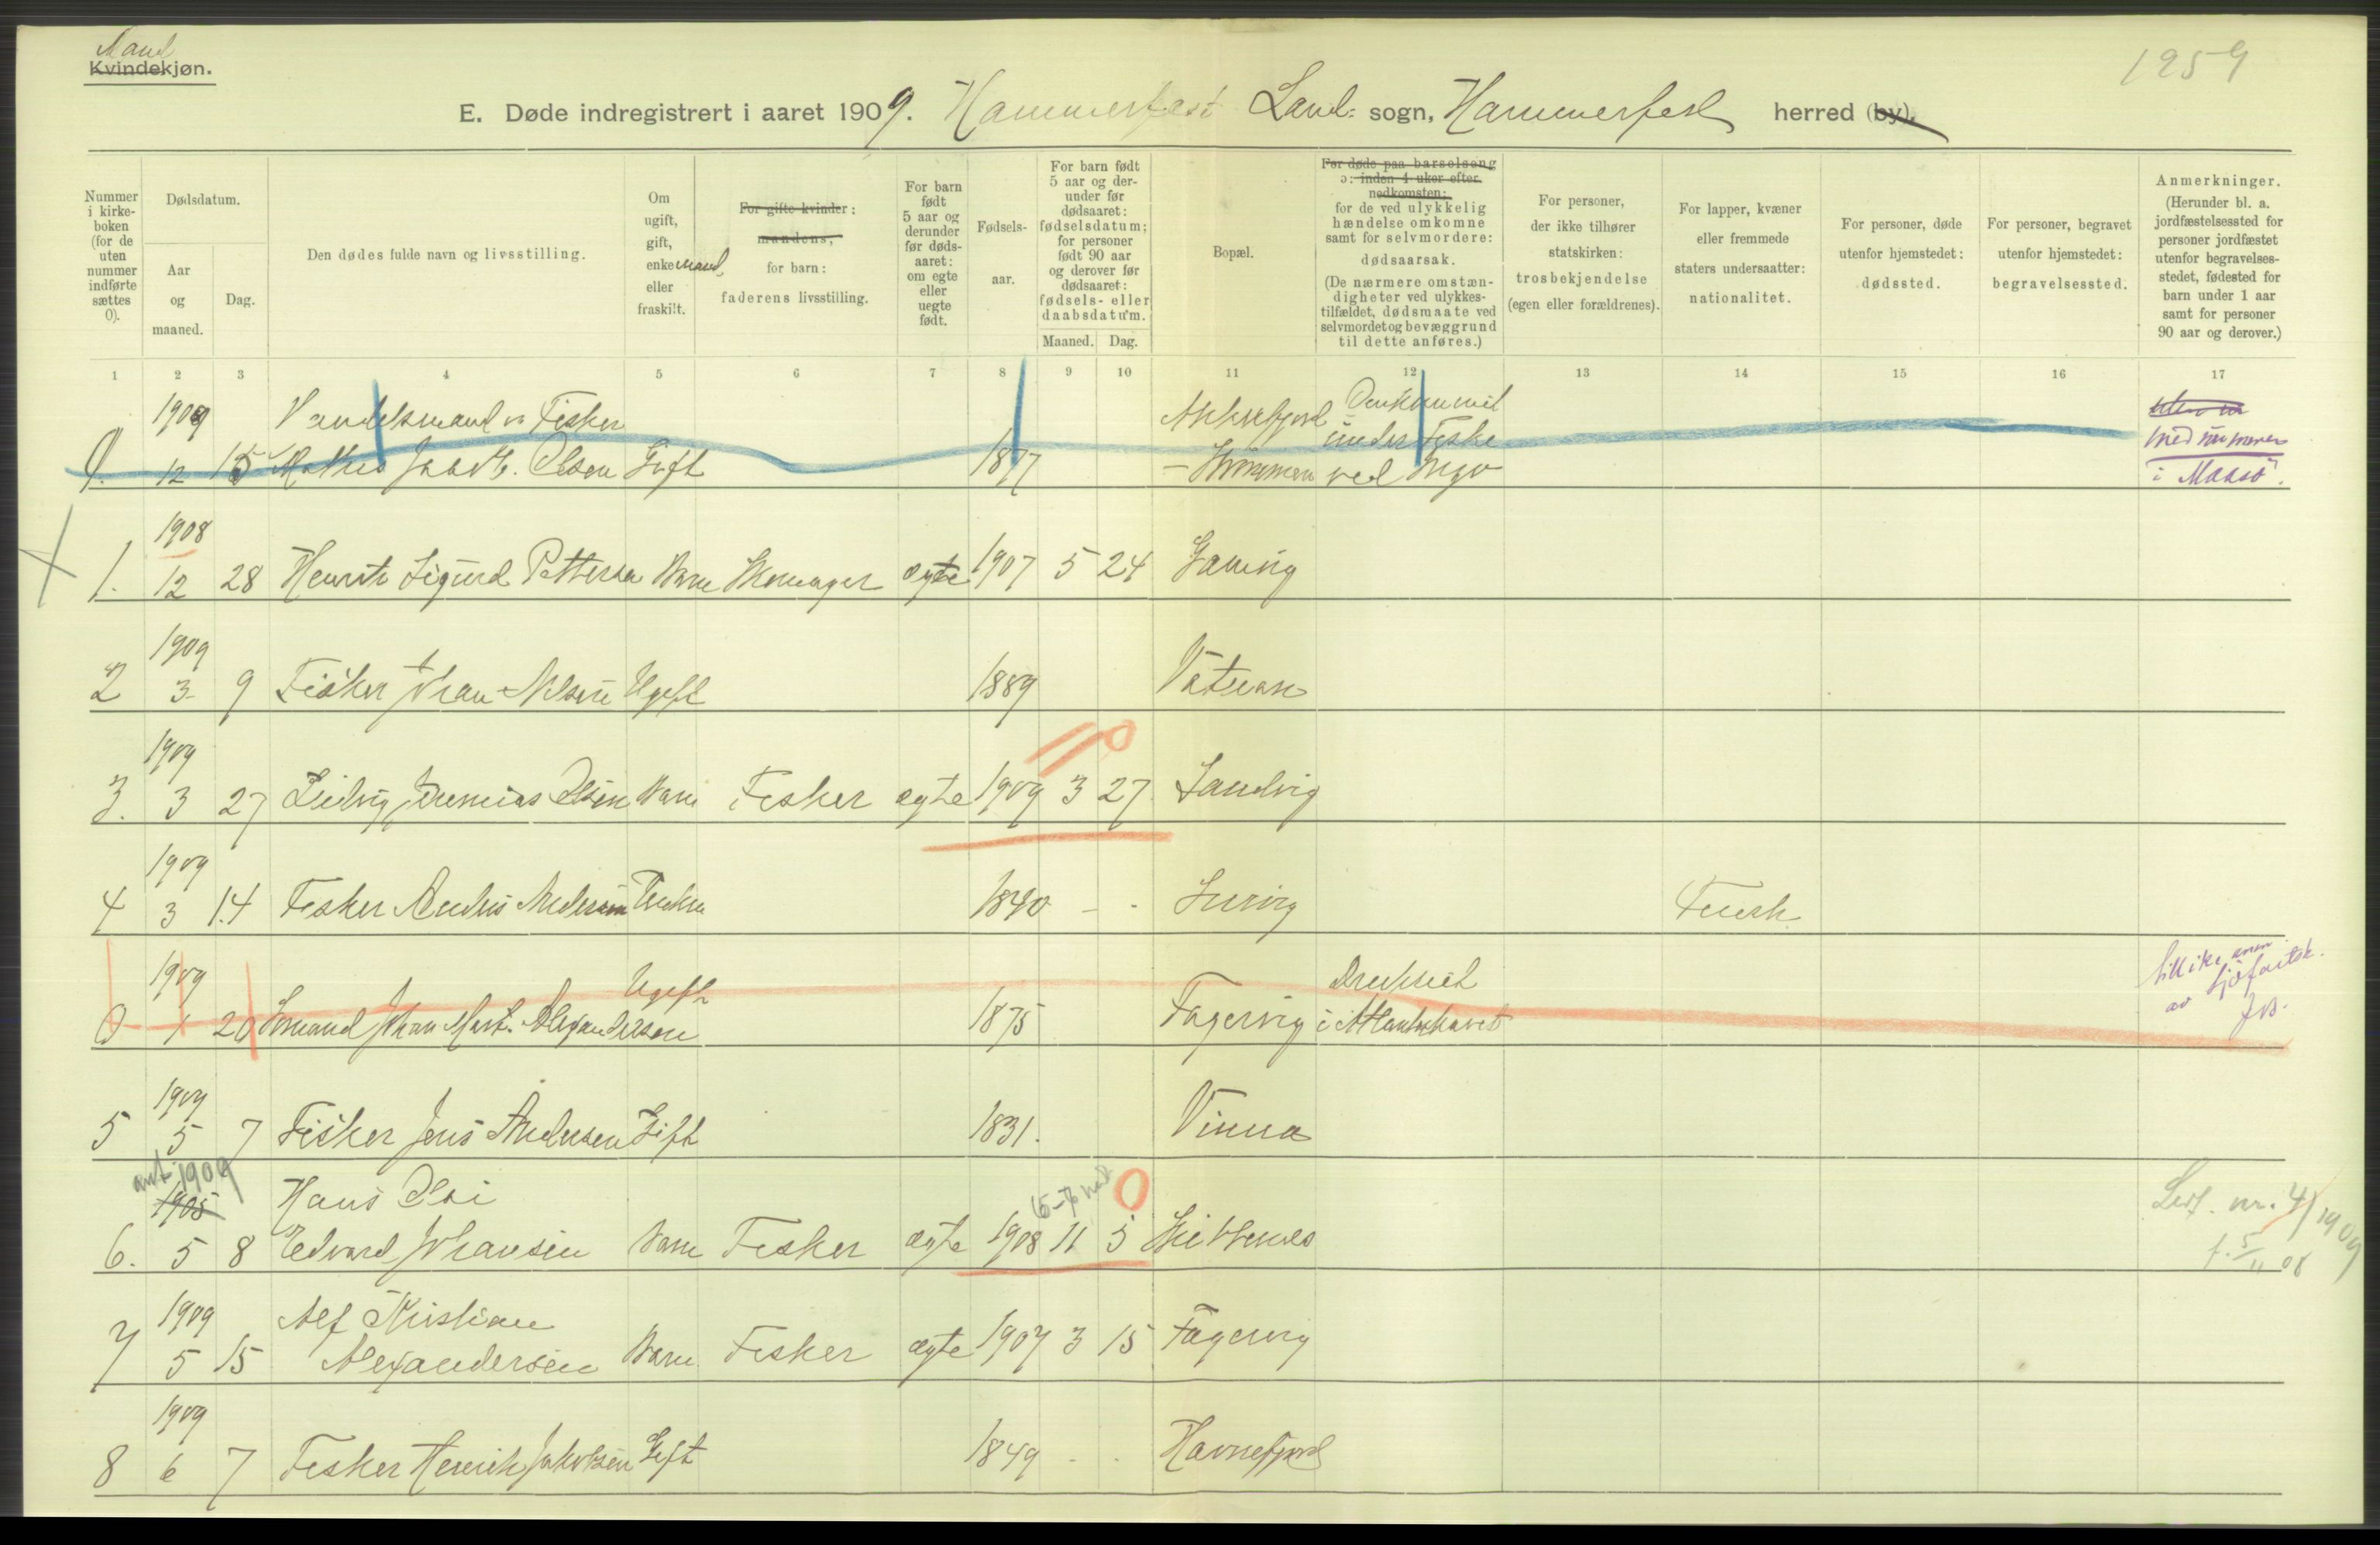 Mand
Kvindekjøn.
1259
E. Døde indregistrert i aaret 1909. Hammerfest Land: sogn, Hammerfest herred (by).
Nummer i kirkeboken (for de uten nummer indførte sættes 0).
Dødsdatum.
Aar og maaned.
Dag.
Den dødes fulde navn og livsstilling.
Om ugift, gift, enkemand, eller fraskilt.
For gifte kvinder: mandens, for barn: faderens livsstilling.
For barn født 5 aar og derunder før dødsaaret: om egte eller uegte født.
Fødselsaar.
For barn født 5 aar og derunder før dødsaaret: fødselsdatum; for personer født 90 aar og derover før dødsaaret: fødsels- eller daabsdatum.
Maaned. Dag.
Bopæl.
For døde paa barselseng ɔ: inden 4 uker efter nedkomsten; for de ved ulykkelig hændelse omkomne samt for selvmordere: dødsaarsak.
(De nærmere omstændigheter ved ulykkestilfældet, dødsmaate ved selvmordet og bevæggrund til dette anføres.)
For personer, der ikke tilhører statskirken: trosbekjendelse (egen eller forældrenes).
For lapper, kvæner eller fremmede staters undersaatter: nationalitet.
For personer, døde utenfor hjemstedet: dødssted.
For personer, begravet utenfor hjemstedet: begravelsessted.
Anmerkninger. (Herunder bl. a. jordfæstelsessted for personer jordfæstet utenfor begravelsesstedet, fødested for barn under 1 aar samt for personer 90 aar og derover.)
1 2 3 4 5 6 7 8 9 10 11 12 13 14 15 16 17
1909 Handelsmand og Fisker Akkarfjord Omkommet
0. 12 15 Olsen Gift 1877 under Fiske ved Ingø
med nummer i Maasø.
1908
1. 12 28 Henrik Sigurd Pettersen Barn ægte 1907 5 24
1909
2 3 9 Fisker Johan Nilsen Ugift 1889
1909
3. 3 27 Ludvig Jeremias Olsen Barn Fisker ægte 1909 3 27 Sandvig
1909
4 3 14 Fisker Anders Andersen 1840 - - Finsk
1909 Ugift Druknet
0 1 20 Sømand Johan Mart. Alexandersen 1875 Fagervig i Atlanterhavet
1909
5 5 7 Fisker Jens Andersen Gift 1831. Vinna
ant. 1909
1905 Hans Olai
6. 5 8 Edvard Johansen Barn Fisker ægte 1908 11 5
nr. 4/1909
f. 5/11 08
1909 Alf Kristian
7 5 15 Alexandersen Barn Fisker ægte 1907 3 15 Fagervig
1909
8 6 7 Fisker Henrik Jakobsen Gift 1849 - - Havnefjord